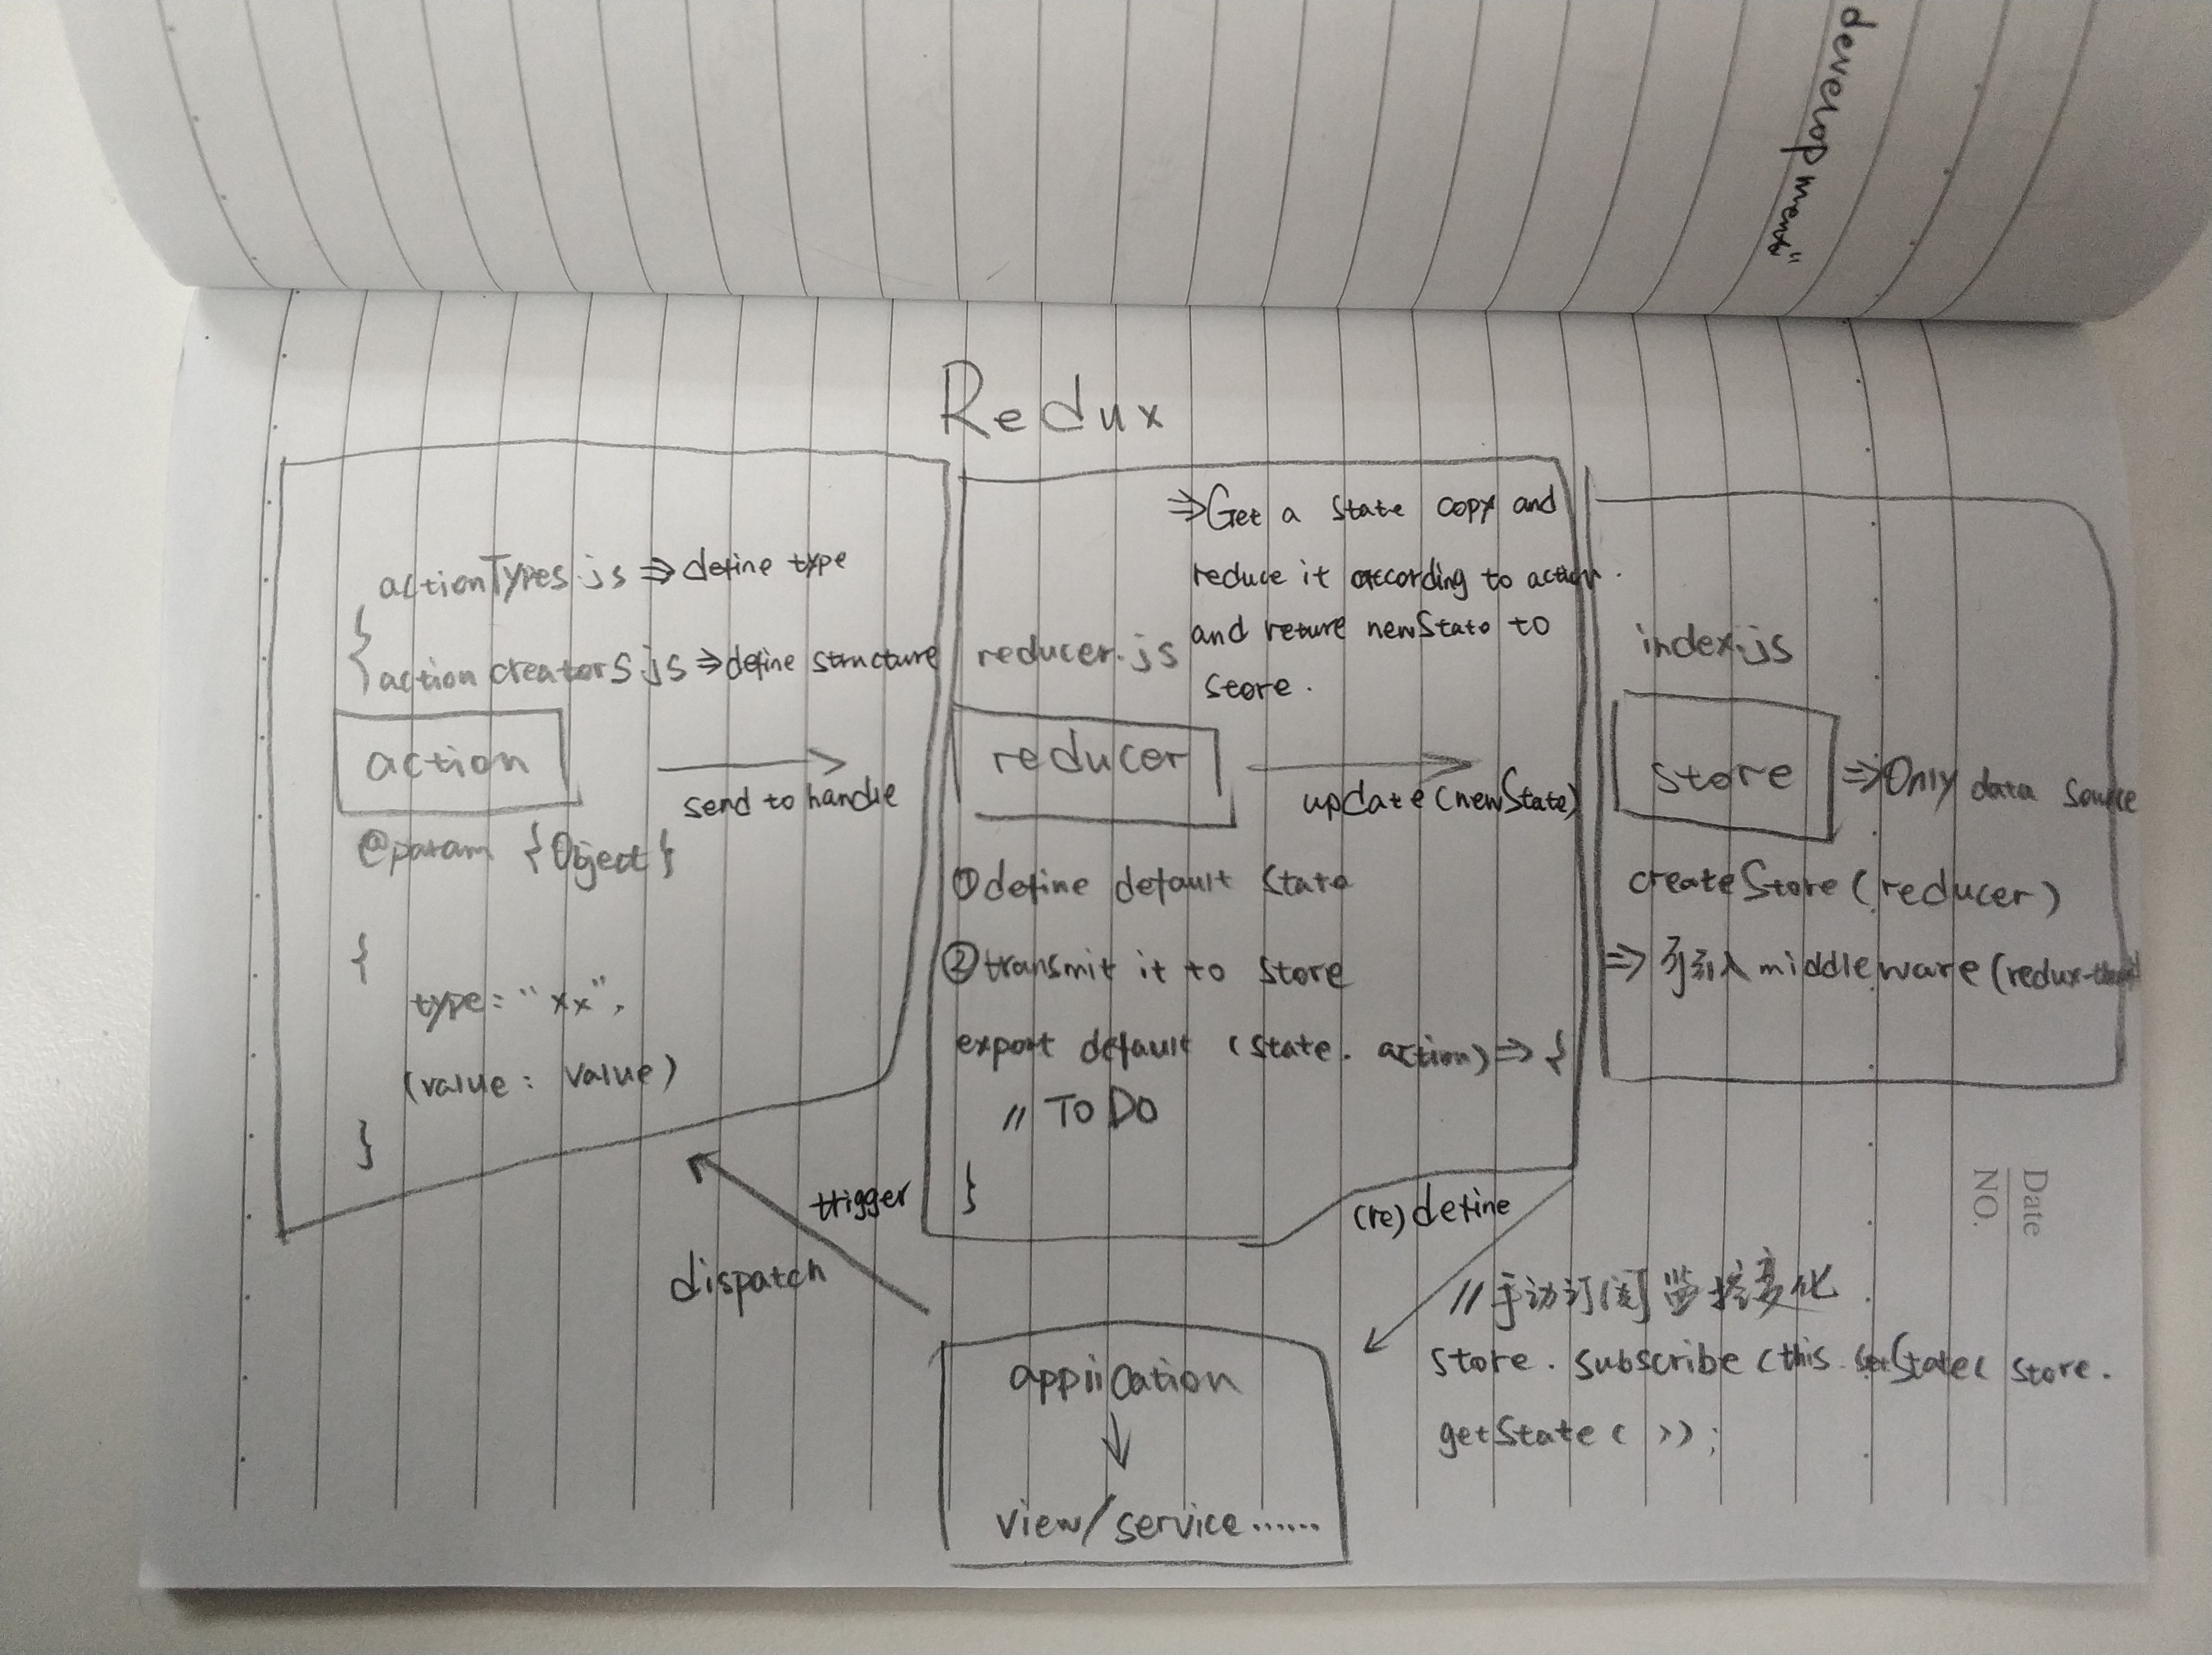 development"
Redux
actionTypes.js ⇒ define type
{
action creators.js ⇒ define structure
action
send to handle
@param {Object}
{
type: "xx",
(value: value)
}
⇒ Get a state copy and
reduce it according to action.
and return newState to
store.
reducer.js
reducer
update(newState)
① define default state
② transmit it to store
export default (state. action) ⇒ {
// TO DO
}
index.js
store
⇒ Only data source
createStore(reducer)
⇒ 引入 middleware (redux-
trigger
dispatch
(re) define
application
↓
view/service ......
// 手动订阅监控变化
store. subscribe (this.setState( store.
getState( ));
Date
NO.